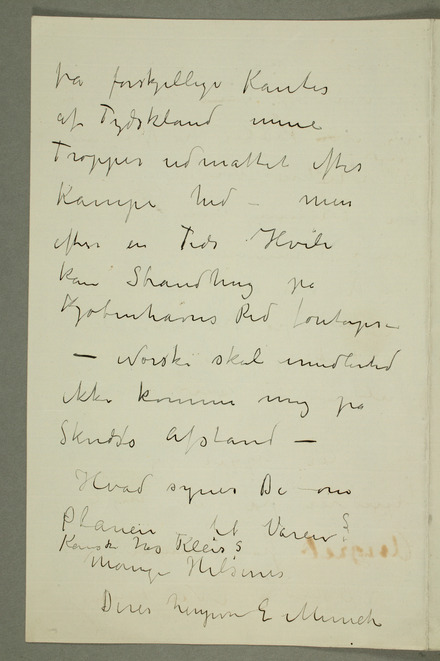 fra forskjellige Kanter
af Tydskland mine
Tropper udmattet efter
Kampe hid – men
efter en Tids Hvile
kan Strandhug på
Kjøbenhavns Red foretages –
– Norske skal imidlertid
ikke komme mig på
Skudds Afstand –
Hvad synes De om
Planen til Våren?
Kanske hos Kleis?
Mange Hilsener
Deres hengivne E Munch